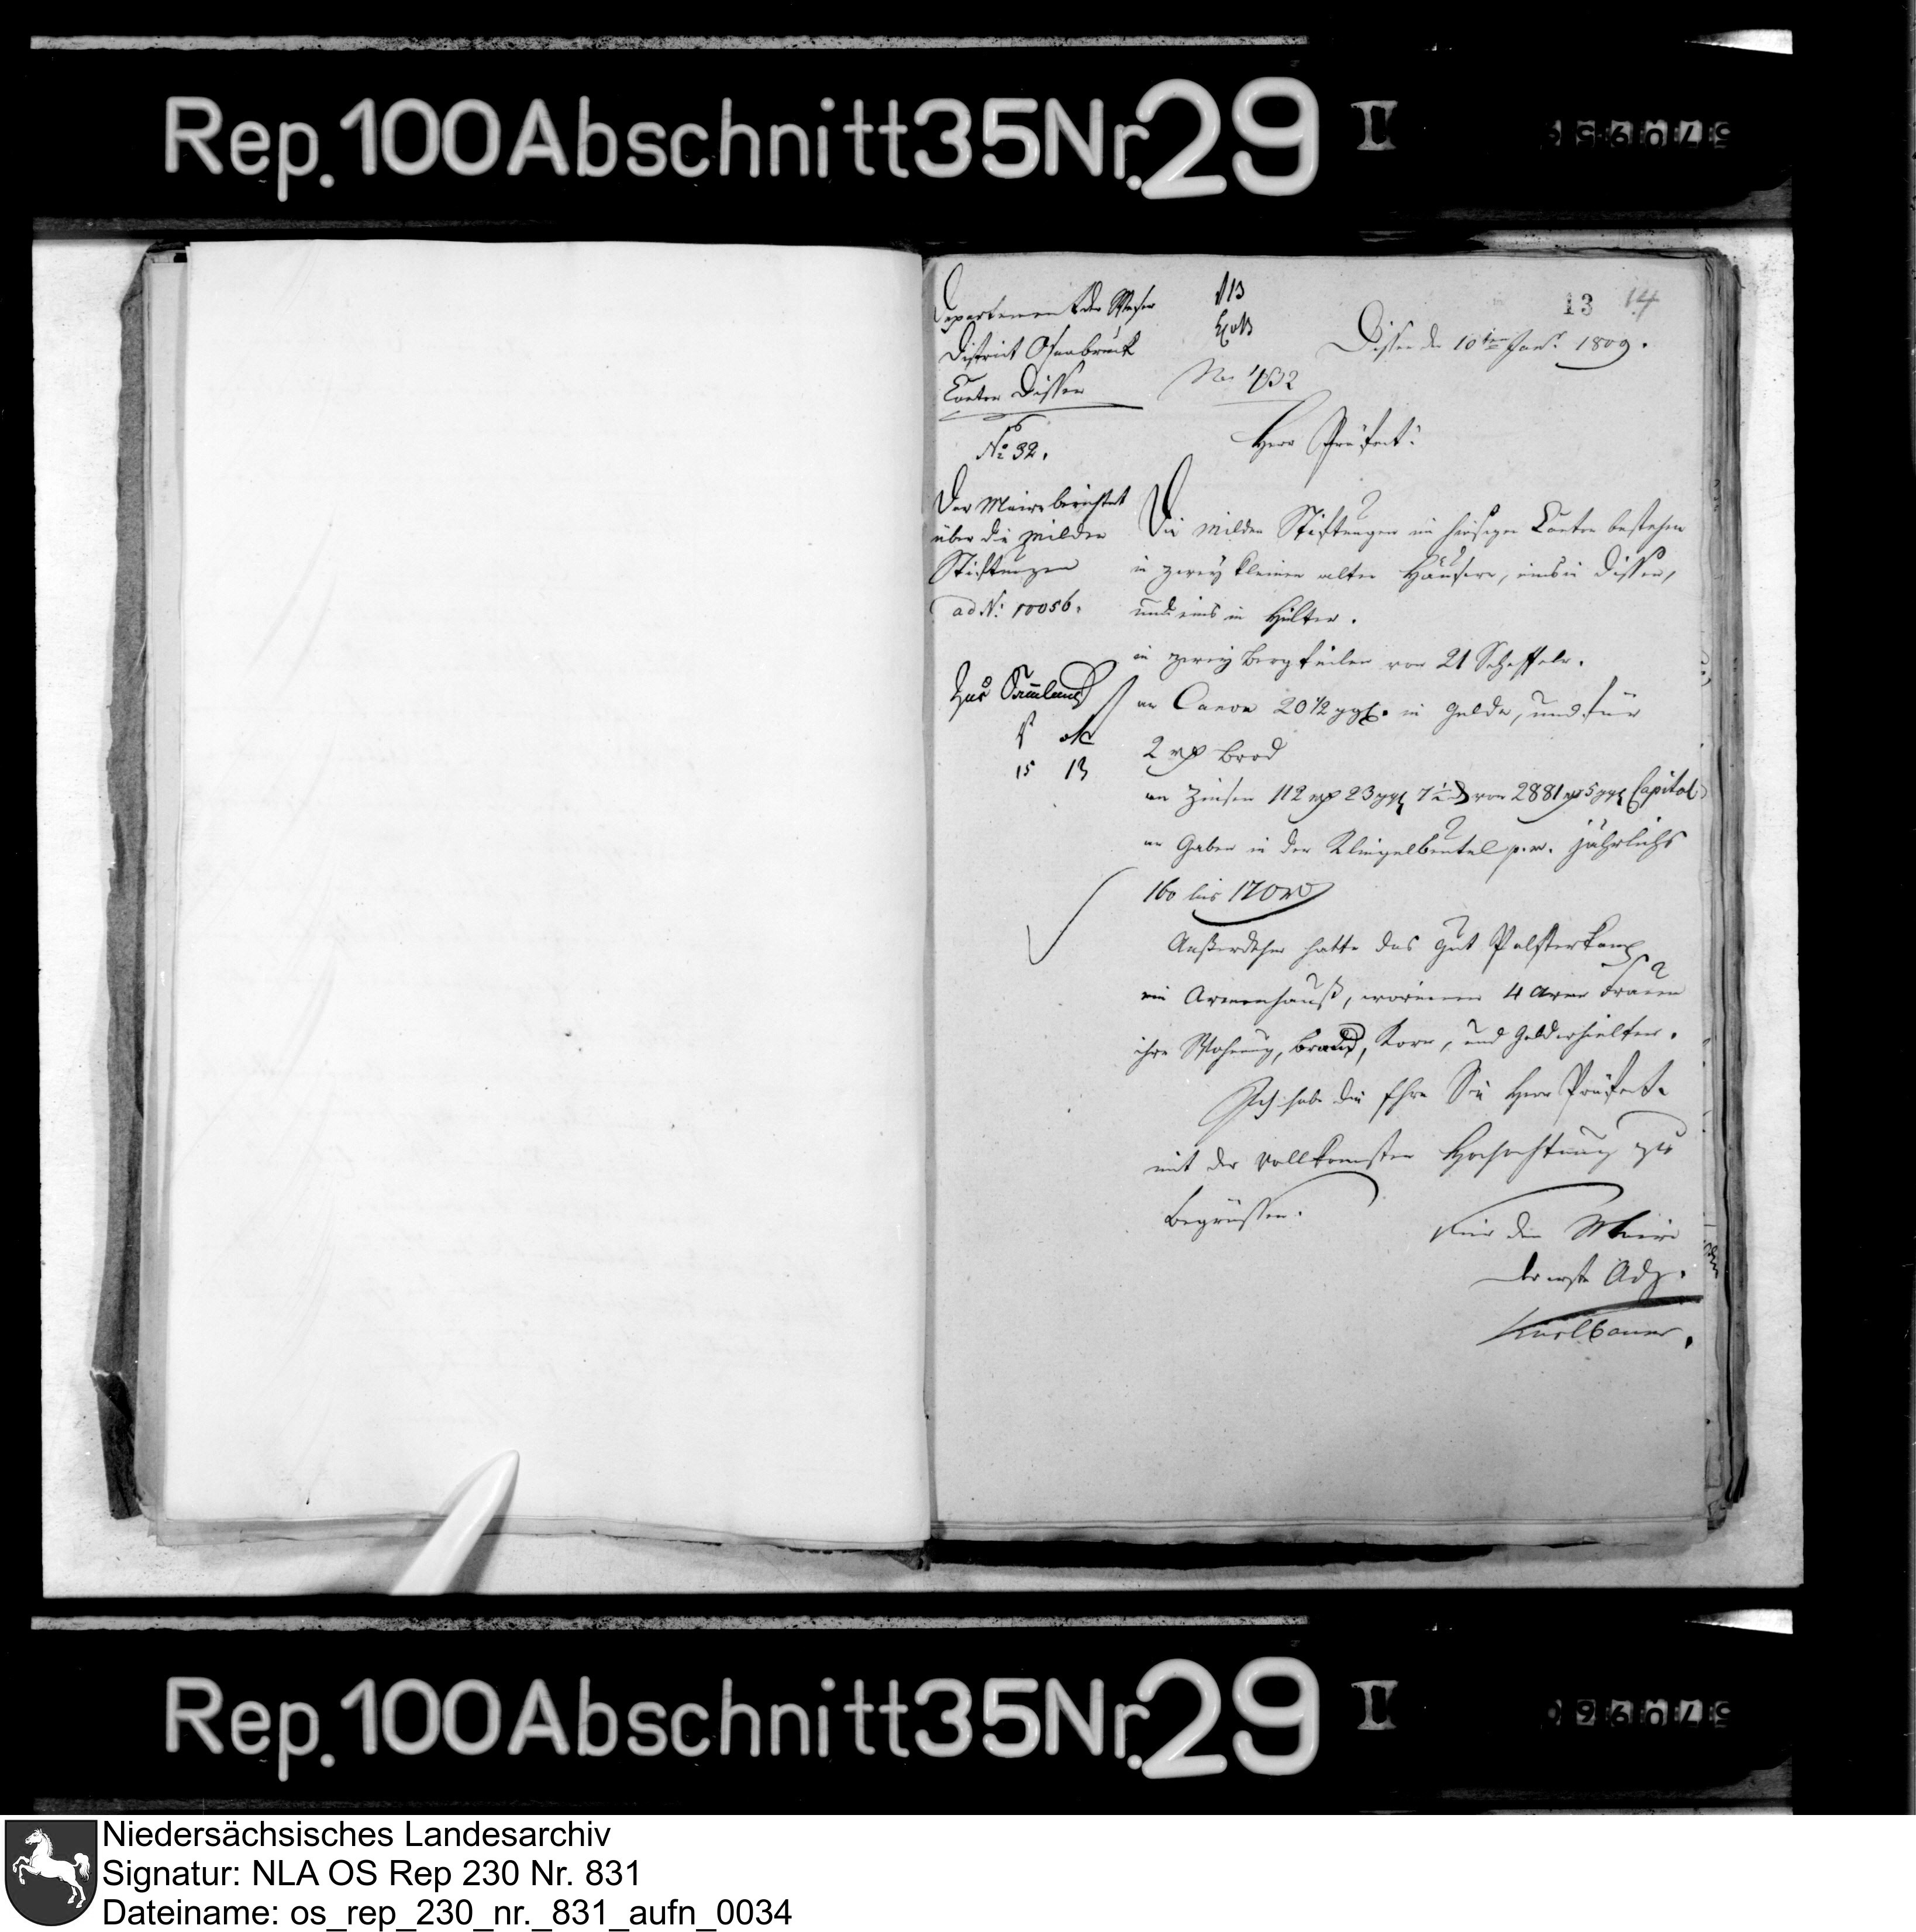 Rep. 100 Abschnitt 35 Nr. 29 I
13 14
Departement der Weser
District Osnabrück
Canton Dissen
No 32.
Dissen den 10ten Janr. 1809.
Herr Präfect!
Der Maire berichtet
über die milden
Stiftungen
ad N: 10056.
Die milden Stiftungen im hiesigen Canton bestehen
in zwey kleinen alten Häusern, eins in Dissen,
und eins in Hilter.
in zwey Bergteilen von 21 Scheffeln.
an Canon 20 1/2 ggl. in Gelde, und für
2 rth Brod
an Zinsen 112 rth 23 ggl 7 1/2 d von 2881 rth 5 ggl Capital
an Gaben in den Klingelbeutel p. m. jährlichs
160 bis 170 rth
Außerdehm hatte das Gut Palsterkamp
ein Armenhauß, worinnen 4 arme Frauen
ihre Wohnung, Brand, Korn, und Geld erhielten.
Ich habe die Ehre Sie Herr Präfect
mit der vollkomsten Hochachtung zu
begrüssen.
Für den Maire
der erste Adj.
15 13
Rep. 100 Abschnitt 35 Nr. 29 I
Niedersächsisches Landesarchiv
Signatur: NLA OS Rep 230 Nr. 831
Dateiname: os_rep_230_nr._831_aufn_0034